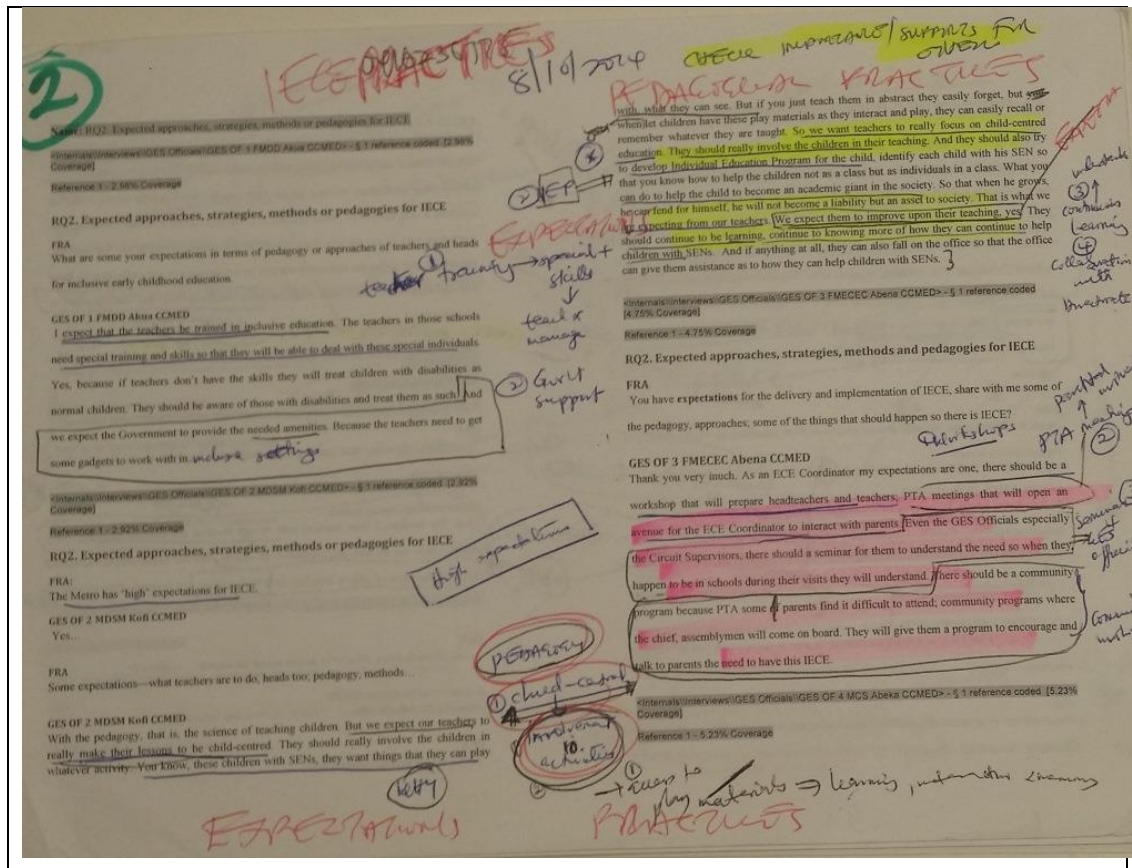 2
IECE PRACTICES
8/10/2024
CHECK IMPORTANCE/SUPPORTS FOR
PEDAGOGICAL PRACTICES
Name: RQ2. Expected approaches, strategies, methods or pedagogies for IECE
<Internals\\Interviews\\GES Officials\\GES OF 1 FMDD Akua CCMED> - § 1 reference coded [2.98%
Coverage]
Reference 1 - 2.98% Coverage
RQ2. Expected approaches, strategies, methods or pedagogies for IECE
EXPECTATIONS
FRA
What are some your expectations in terms of pedagogy or approaches of teachers and heads
for inclusive early childhood education.
① teacher training → special +
skills
↓
teach &
manage
GES OF 1 FMDD Akua CCMED
I expect that the teachers be trained in inclusive education. The teachers in those schools
need special training and skills so that they will be able to deal with these special individuals
Yes, because if teachers don't have the skills they will treat children with disabilities as
normal children. They should be aware of those with disabilities and treat them as such. And
we expect the Government to provide the needed amenities. Because the teachers need to get
some gadgets to work with in inclusive settings
② Gov't
support
<Internals\\Interviews\\GES Officials\\GES OF 2 MDSM Kofi CCMED> - § 1 reference coded [2.92%
Coverage]
Reference 1 - 2.92% Coverage
RQ2. Expected approaches, strategies, methods or pedagogies for IECE
High expectations
FRA:
The Metro has 'high' expectations for IECE.
GES OF 2 MDSM Kofi CCMED
Yes...
FRA
Some expectations—what teachers are to do, heads too; pedagogy, methods…
PEDAGOGY
① child-centred
Involvement
to
activities
②
GES OF 2 MDSM Kofi CCMED
With the pedagogy, that is, the science of teaching children. But we expect our teachers to
really make their lessons to be child-centred. They should really involve the children in
whatever activity. You know, these children with SENs, they want things that they can play
EXPECTATIONS
with, what they can see. But if you just teach them in abstract they easily forget, but
when let children have these play materials as they interact and play, they can easily recall or
remember whatever they are taught. So we want teachers to really focus on child-centred
education. They should really involve the children in their teaching. And they should also try
to develop Individual Education Program for the child, identify each child with his SEN so
that you know how to help the children not as a class but as individuals in a class. What you
can do to help the child to become an academic giant in the society. So that when he grows,
he can fend for himself, he will not become a liability but an asset to society. That is what we
expecting from our teachers. We expect them to improve upon their teaching, yes. They
should continue to be learning, continue to knowing more of how they can continue to help
children with SENs. And if anything at all, they can also fall on the office so that the office
can give them assistance as to how they can help children with SENs.
② IEP
③
continuous
learning
④
Collaboration
with
<Internals\\Interviews\\GES Officials\\GES OF 3 FMECEC Abena CCMED> - § 1 reference coded
[4.75% Coverage]
Reference 1 - 4.75% Coverage
RQ2. Expected approaches, strategies, methods and pedagogies for IECE
FRA
You have expectations for the delivery and implementation of IECE, share with me some of
the pedagogy, approaches; some of the things that should happen so there is IECE?
① Workshops
PTA meetings
②
GES OF 3 FMECEC Abena CCMED
Thank you very much. As an ECE Coordinator my expectations are one, there should be a
workshop that will prepare headteachers and teachers; PTA meetings that will open an
avenue for the ECE Coordinator to interact with parents. Even the GES Officials especially
the Circuit Supervisors, there should a seminar for them to understand the need so when they
happen to be in schools during their visits they will understand. There should be a community
program because PTA some of parents find it difficult to attend; community programs where
the chief, assemblymen will come on board. They will give them a program to encourage and
talk to parents the need to have this IECE.
<Internals\\Interviews\\GES Officials\\GES OF 4 MCS Abeka CCMED> - § 1 reference coded [5.23%
Coverage]
Reference 1 - 5.23% Coverage
①
→ access to
play materials ⇒ learning
PRACTICES